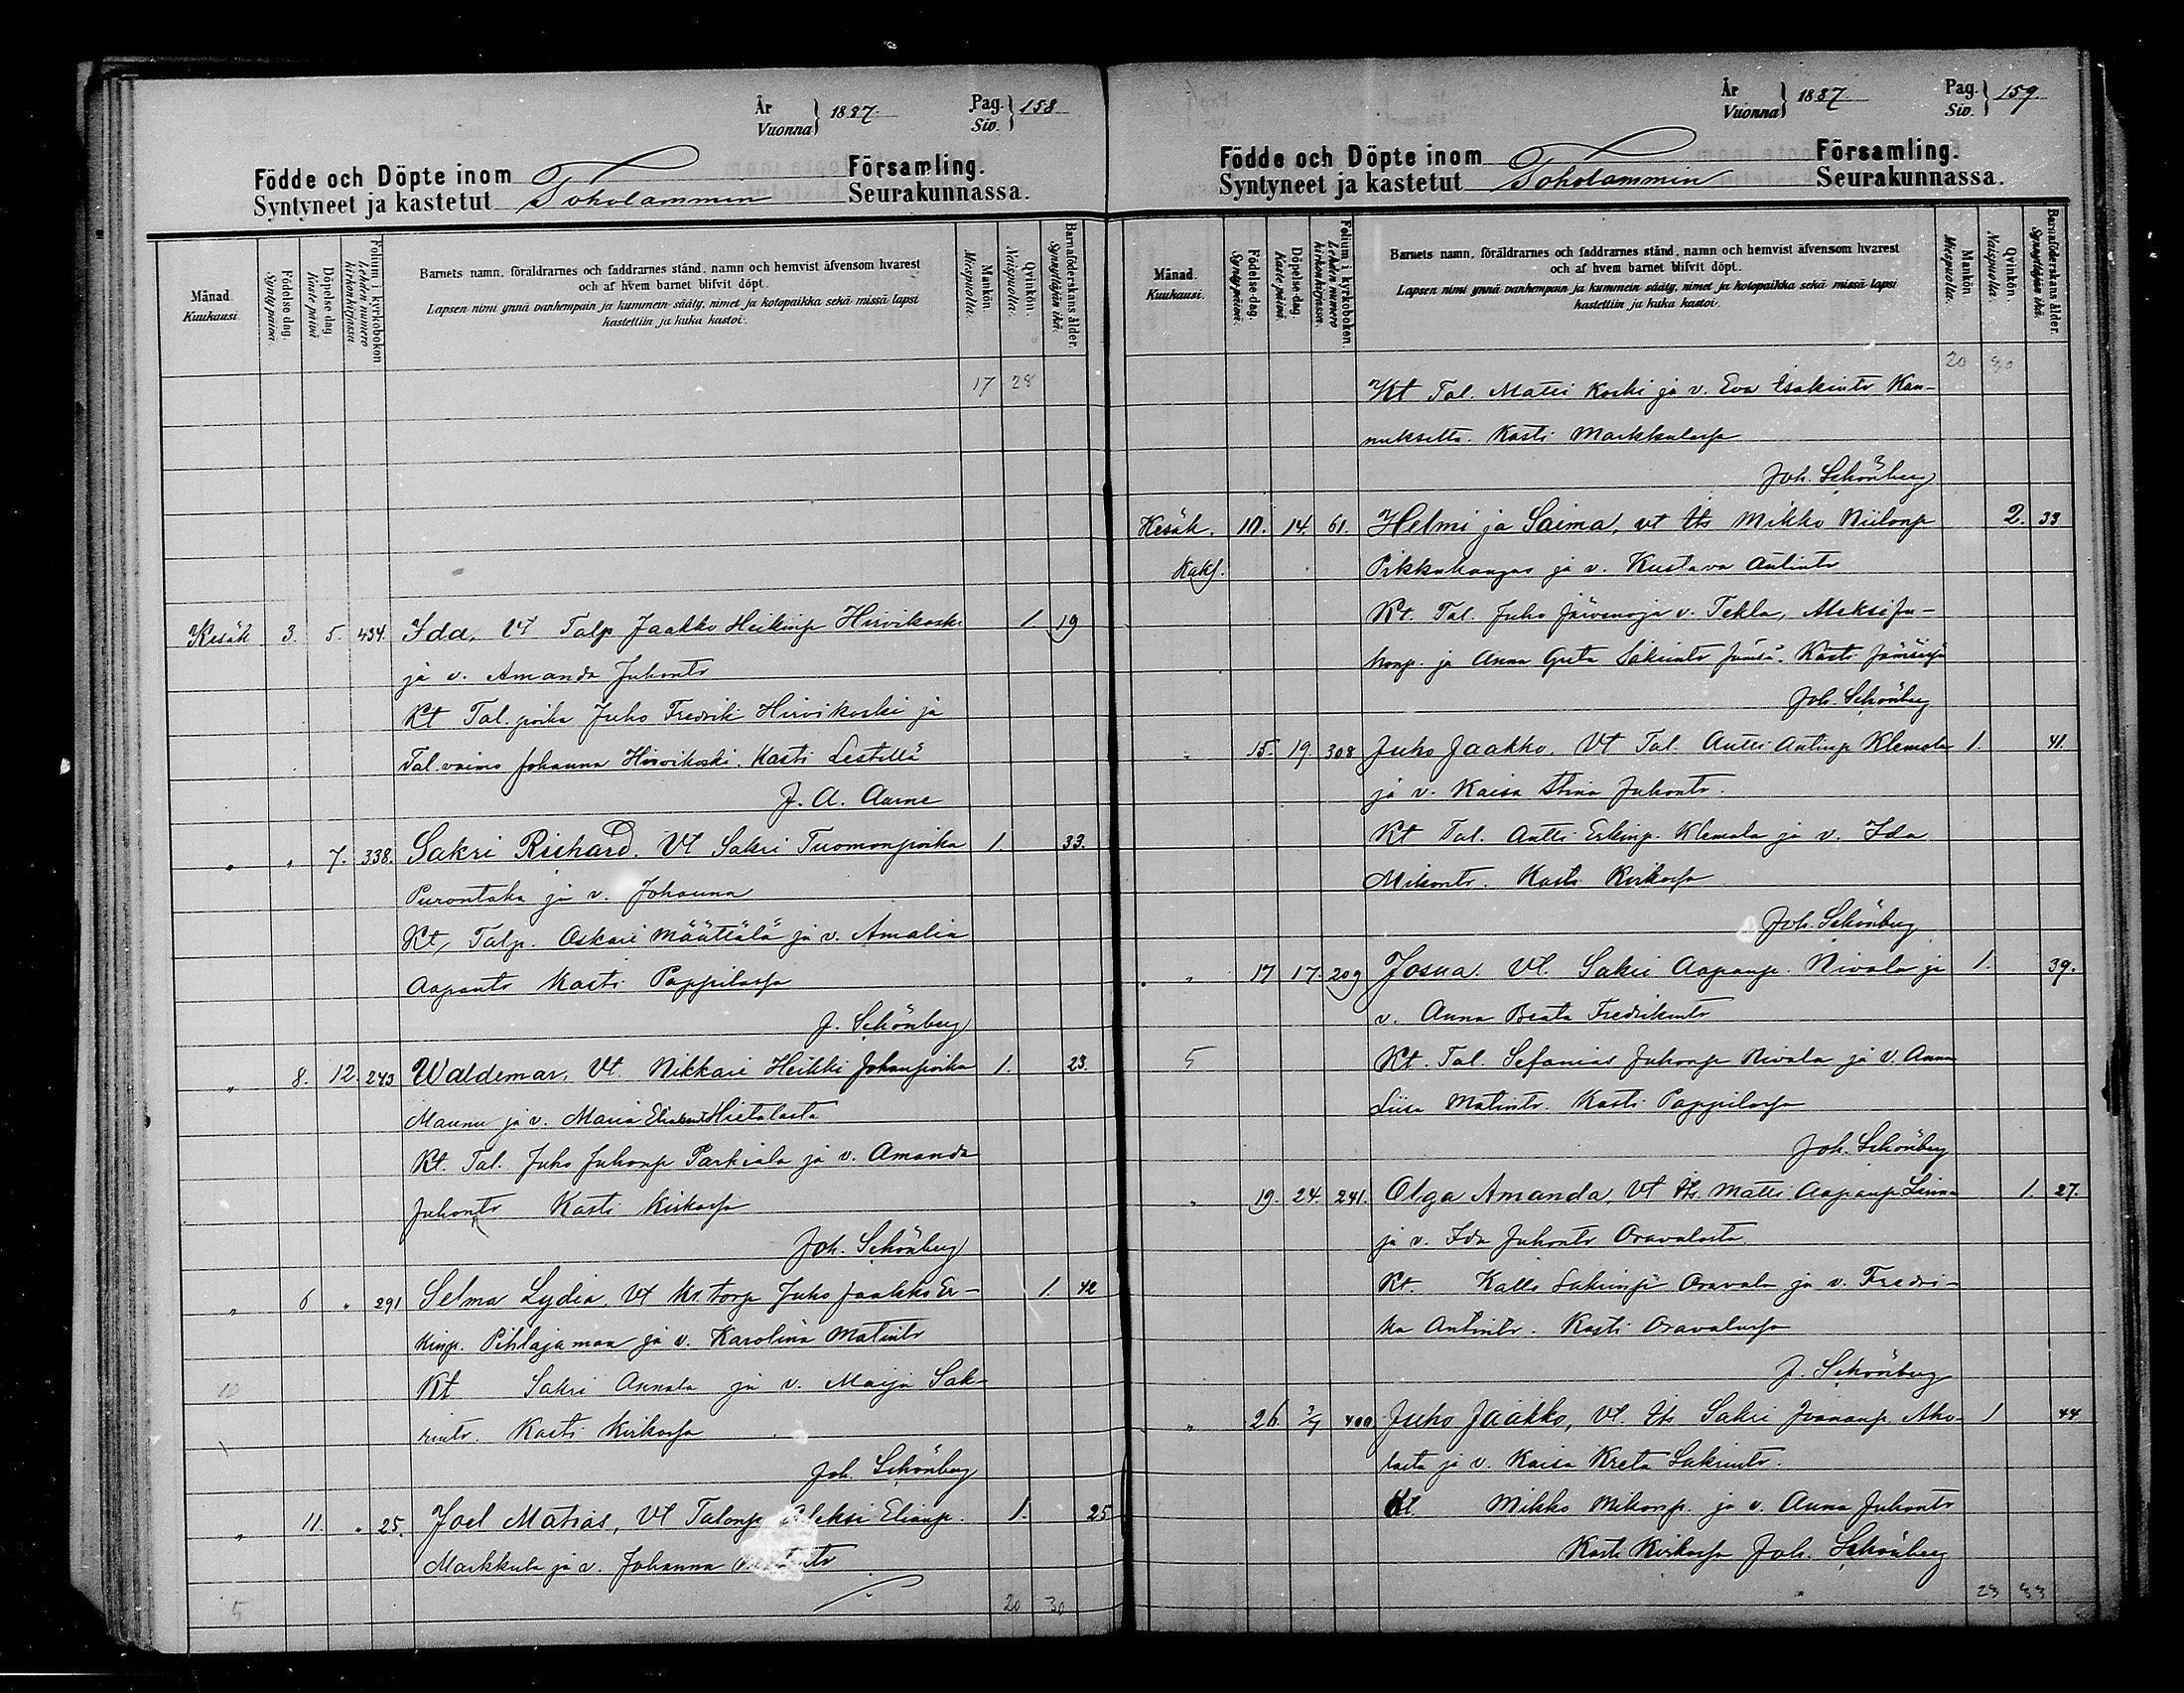 År
Vuonna } 1887. Pag.
Siv. } 158
Födde och Döpte inom Församling.
Syntyneet ja kastetut Toholammin Seurakunnassa.
Månad.
Kuukausi
Födelse dag.
Synty päivä.
Döpelse dag
Kaste päivä
Folium i kyrkoboken
Lehden numero kirkonkirjassa
Barnets namn, föräldrarnes och faddrarnes stånd, namn och hemvist äfvensom hvarest
och af hvem barnet blifvit döpt.
Lapsen nimi ynnä vanhempain ja kummein sääty, nimet ja kotopaikka sekä missä lapsi
kastettiin ja kuka kastoi.
Mankön.
Miespuolta.
Qvinkön.
Naispuolta.
Barnaföderskans ålder.
Synnyttäjän ikä.
17 28
Kesäk 3. 5. 434. Ida, Vt Talp Jaakko Heikinp Hirvikoski 1 19
ja v. Amanda Juhontr
Kt Tal. poika Juho Fredrik Hirvikoski ja
Tal. vaimo Johanna Hirvikoski. Kasti Lestillä
J. A. Aarne
" " 7. 338. Sakri Richard. Vt Sakri Tuomonpoika 1. 33.
Purontaka ja v. Johanna
Kt, Talp. Oskari Määttälä ja v. Amalia
Aapontr Kasti Pappilassa
J. Schönberg
" 8. 12. 243 Waldemar, Vt. Nikkari Heikki Johanpoika 1. 23.
Maunu ja v. Maria Hietalasta
Kt. Tal. Juho Juhonp Parkiala ja v. Amanda
Juhontr Kasti Kirkossa
Joh. Schönberg
" 6 " 291 Selma Lydia, Vt Kr. torp Juho Jaakko Er- 1. 42
kinp. Pihlajamaa ja v. Karolina Matintr
10 Kt Sakri Annala ja v. Maija Sak-
rintr. Kasti Kirkossa
Joh. Schönberg
" 11. " 25. Joel Matias, Vt Talonp Aleksi Eliaanp. 1. 25
Markkula ja v. Johanna
5 20 30
År
Vuonna } 1887. Pag.
Siv. } 159.
Födde och Döpte inom Församling.
Syntyneet ja kastetut Toholammin Seurakunnassa.
Månad.
Kuukausi.
Födelse-dag.
Synty päivä.
Döpelse-dag.
Kaste-päivä.
Folium i kyrkoboken
Lehden numero kirkonkirjassa.
Barnets namn, föräldrarnes och faddrarnes stånd, namn och hemvist äfvensom hvarest
och af hvem barnet blifvit döpt.
Lapsen nimi ynnä vanhempain ja kummein sääty, nimet ja kotopaikka sekä missä lapsi
kastettiin ja kuka kastoi.
Mankön.
Miespuolta.
Qvinkön.
Naispuolta.
Barnaföderskans ålder.
Synnyttäjän ikä.
20 30
Kt Tal. Matti Koski ja v. Eva Esakintr Kan-
nuksetta. Kasti Markkulassa
Joh. Schönberg
Kesäk. 10. 14. 61. Helmi ja Saima, vt its Mikko Niilonp 2. 33
Kaks. Pikkukangas ja v. Kustava Antintr
Kt. Tal. Juho Järvenoja v. Tekla, Aleksi Ju-
honp. ja Anna Greta Sakrintr Jämsä. Kasti Jämsässä
Joh. Schönberg
" 15. 19. 308 Juho Jaakko. Vt Tal. Antti Antinp Klemola 1. 41.
ja v. Kaisa Stina Juhontr.
Kt Tal. Antti Erkinp. Klemola ja v. Ida
Mikontr. Kasti Kirkossa
Joh. Schönberg
" 17 17. 209 Josua. Vt. Sakri Aapanp. Nivala ja 1. 39.
v. Anna Beata Fredrikintr
5 Kt. Tal. Sefanias Juhonp Nivala ja v. Anna
Liisa Matintr. Kasti Pappilassa
Joh. Schönberg
" 19. 24. 241. Olga Amanda, Vt Its. Matti Aapanp Linna 1. 27.
ja v. Ida Juhontr Oravalasta.
Kt. Kalle Sakrinp Oravala ja v. Fredri-
ka Antintr. Kasti Oravalassa
J. Schönberg
" 26. 3/7 400. Juho Jaakko, Vt. Its Sakri Joonanp. Aho- 1 44
lasta ja v. Kaisa Kreta Sakrintr.
Kt. Mikko Mikonp. ja v. Anna Juhontr
Kasti Kirkossa Joh. Schönberg
23 33